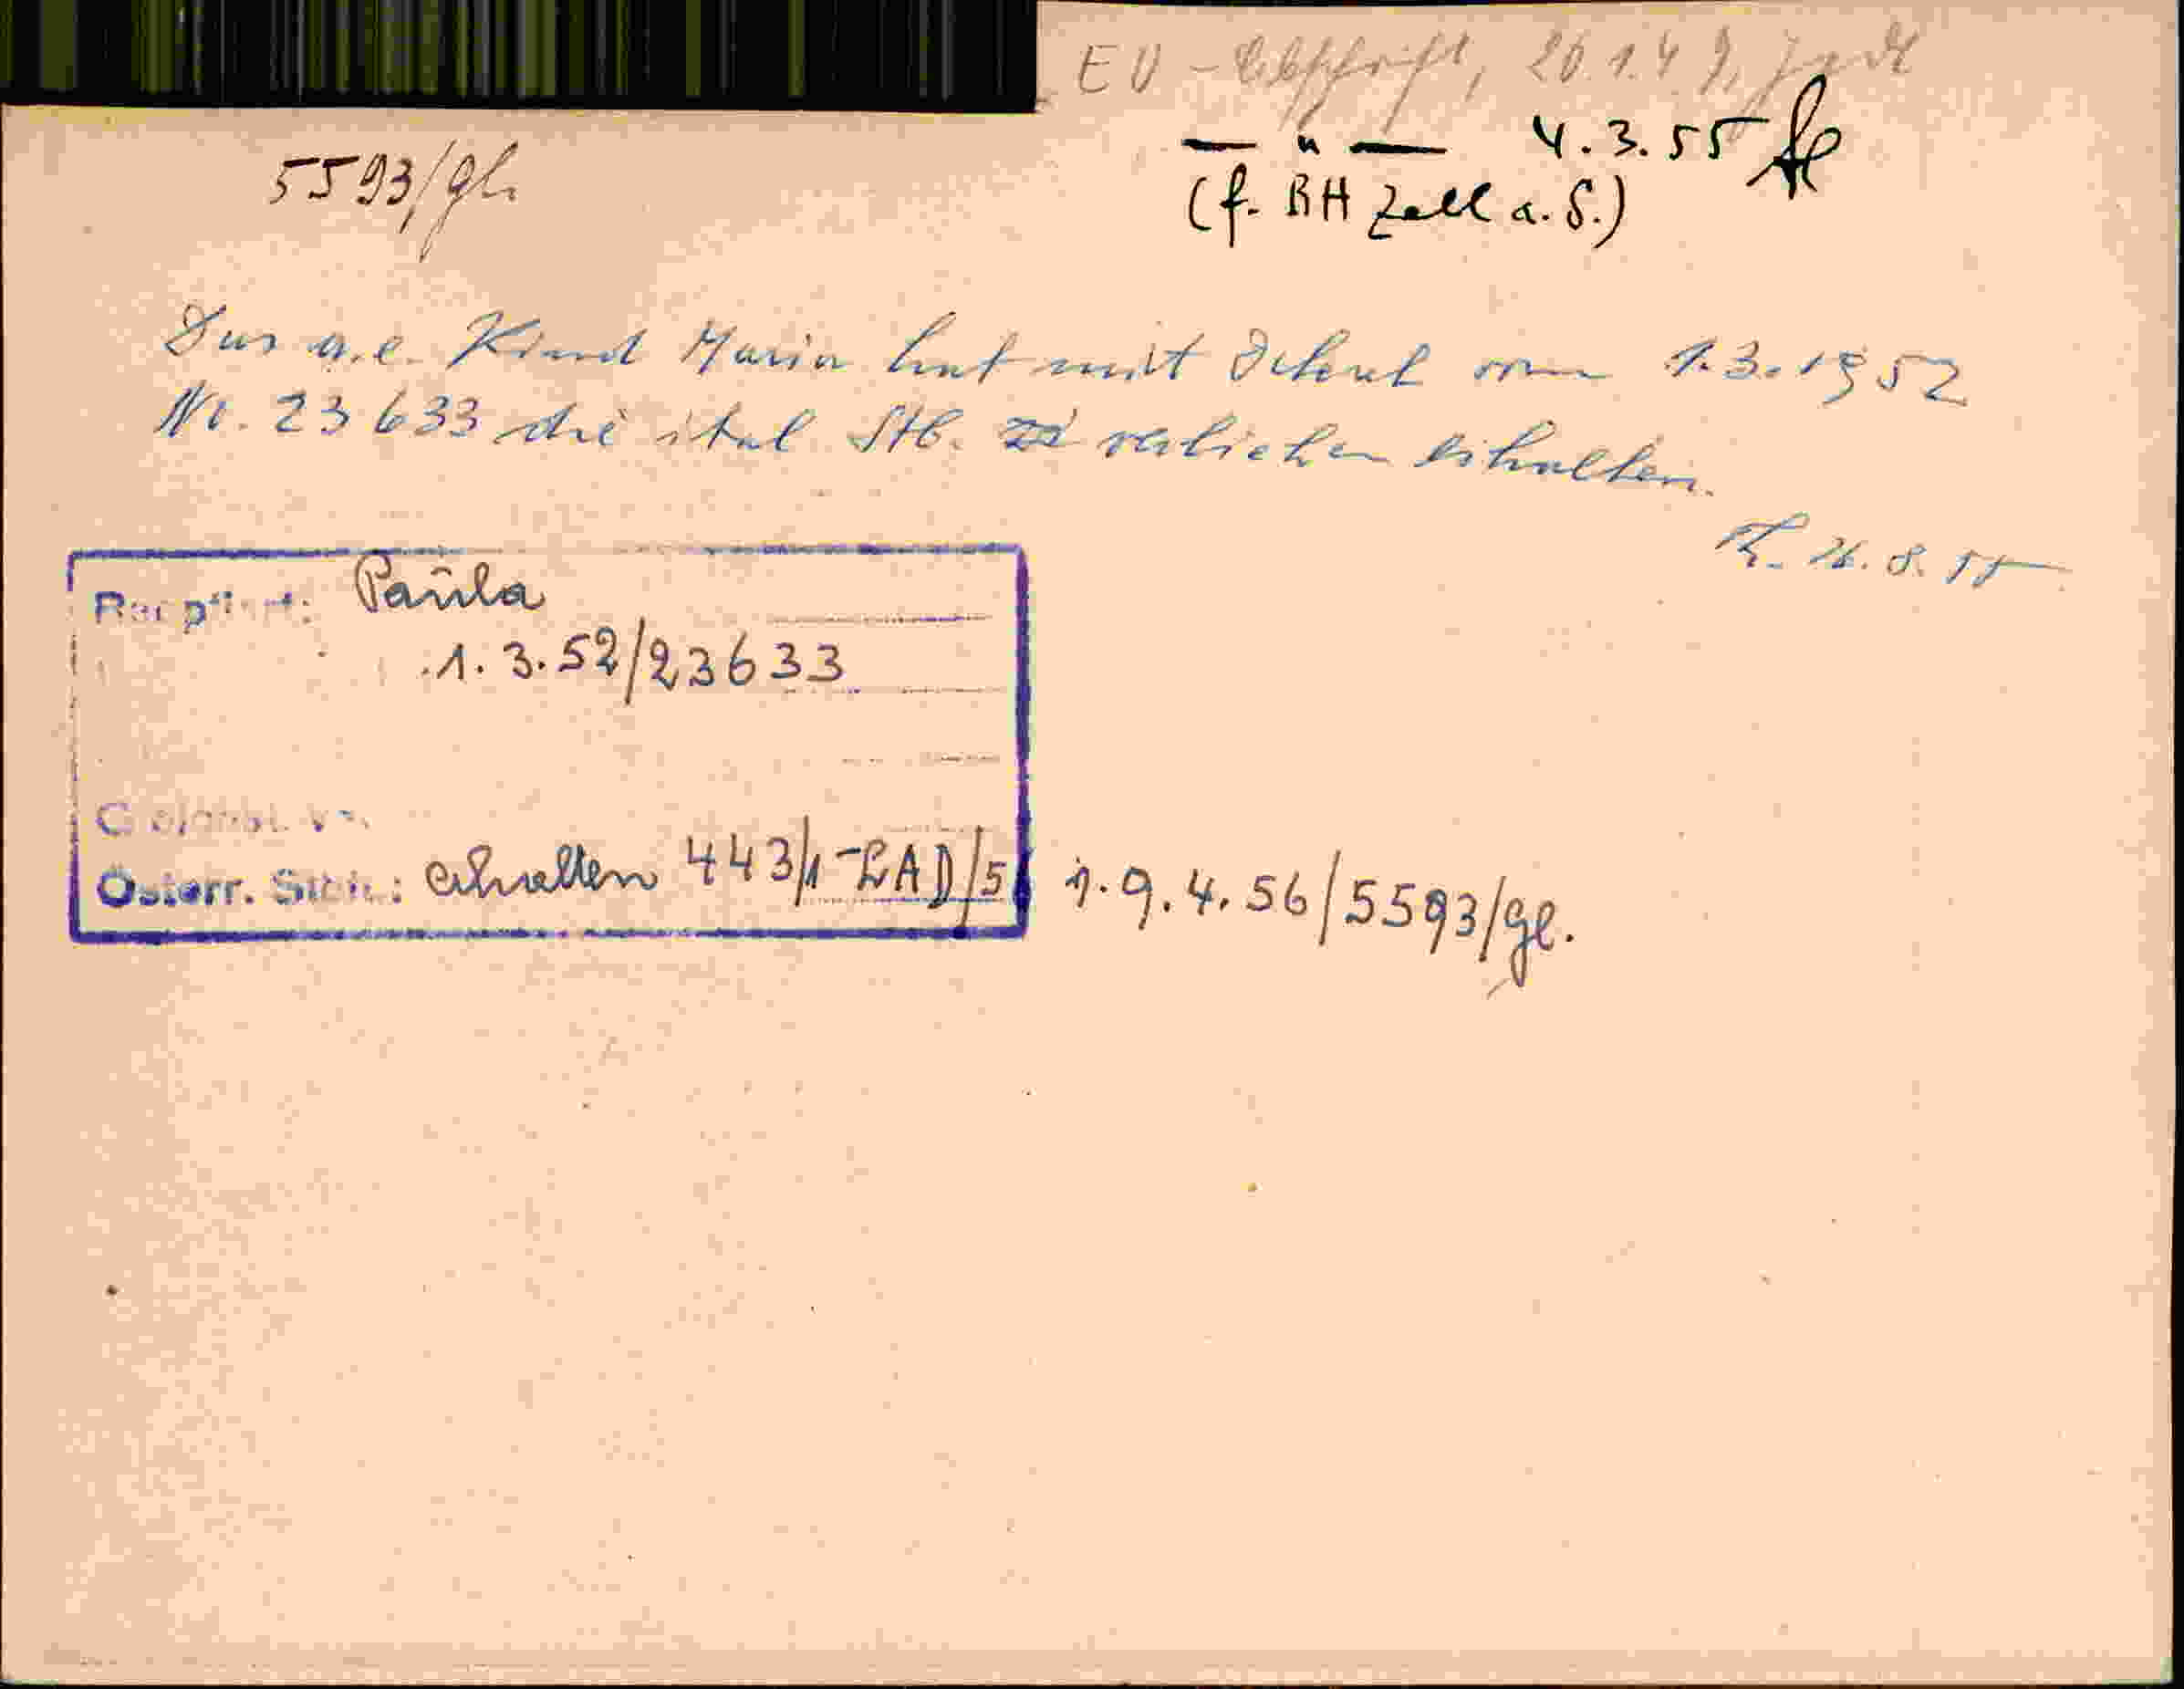 EU - Abschrift, 20.1.49,
— " — 4.3.55
(f. BH Zell a. S.)
5593/gl.
Das a.e. Kind Maria hat mit Dekret vom 1.3.1952
Nr. 23633 die ital Stb. verliehen erhalten.
26.8.55
Paula
1.3.52/23633
Österr. Stb.: erhalten 443/1-LAD/51. 9.4.56/5593/gl.